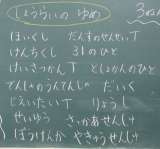 しょうらいの ゆめ
3ねん
ほいくし だんすのせんせいT
けんちくし 31のひと
けいさつかんT としょかんのひと
てんじゅうのうてんしゅ だいく
じえいたいT りょうし
せいゆう さっかあせんしゅ
ぼうけんか やきゅうせんしゅ